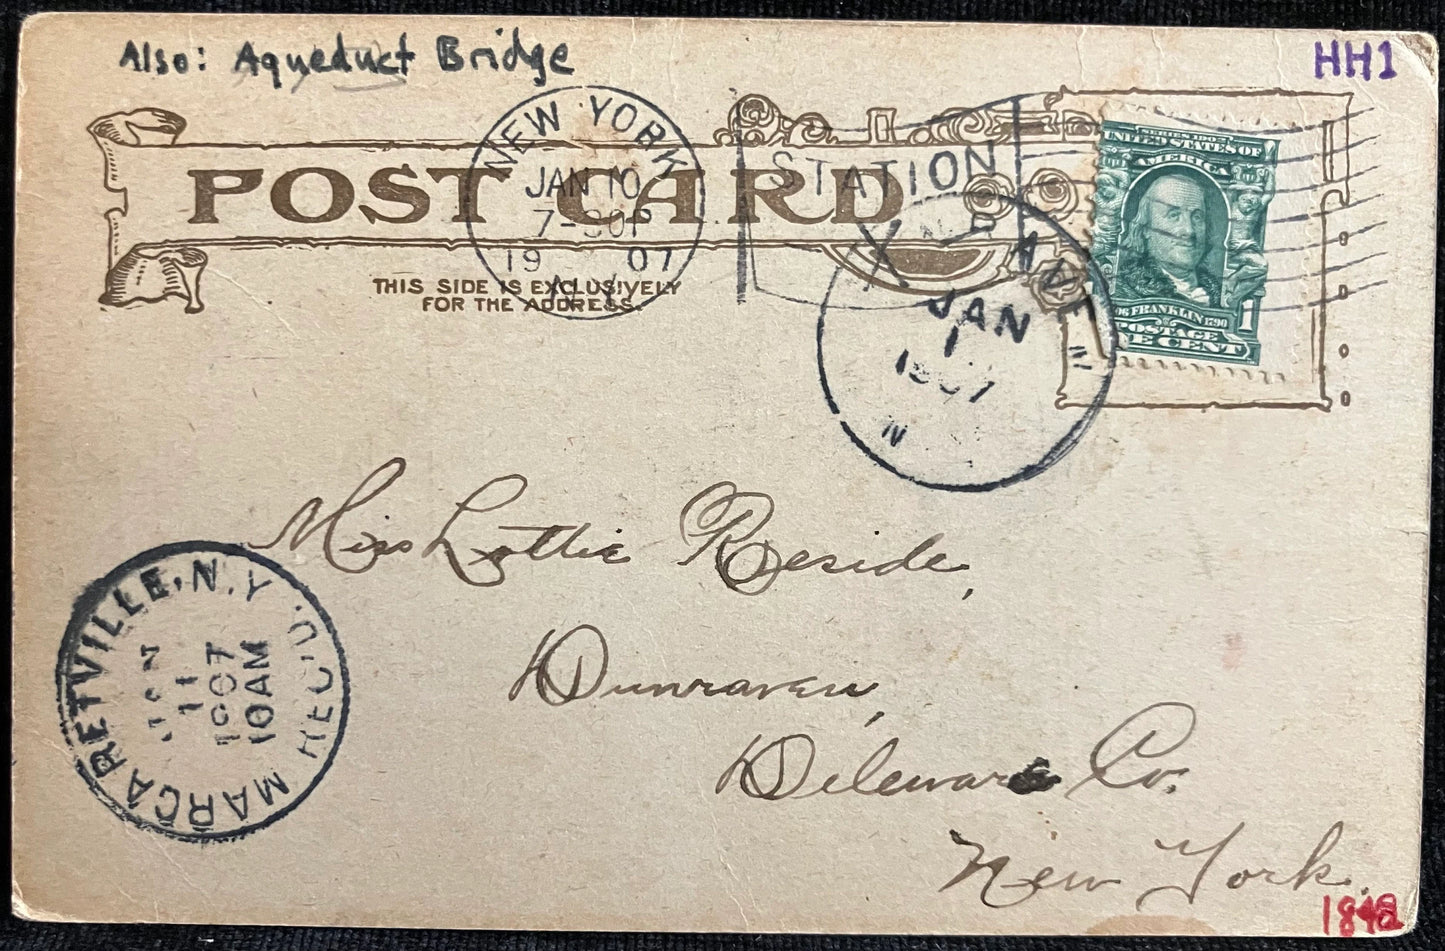 Also: Aqueduct Bridge
HH1
POST CARD
THIS SIDE IS EXCLUSIVELY
FOR THE ADDRESS.
NEW YORK
JAN 10
7-30P
19 07
N.Y.
STATION
SERIES 1902
UNITED STATES OF
AMERICA
FRANKLIN 1790
POSTAGE
1
ONE CENT
JAN
1907
N
Miss Lottie Reside,
Dunraven,
Delaware Co.
New York.
MARGARETVILLE, N.Y. REC'D.
JAN
11
1907
10AM